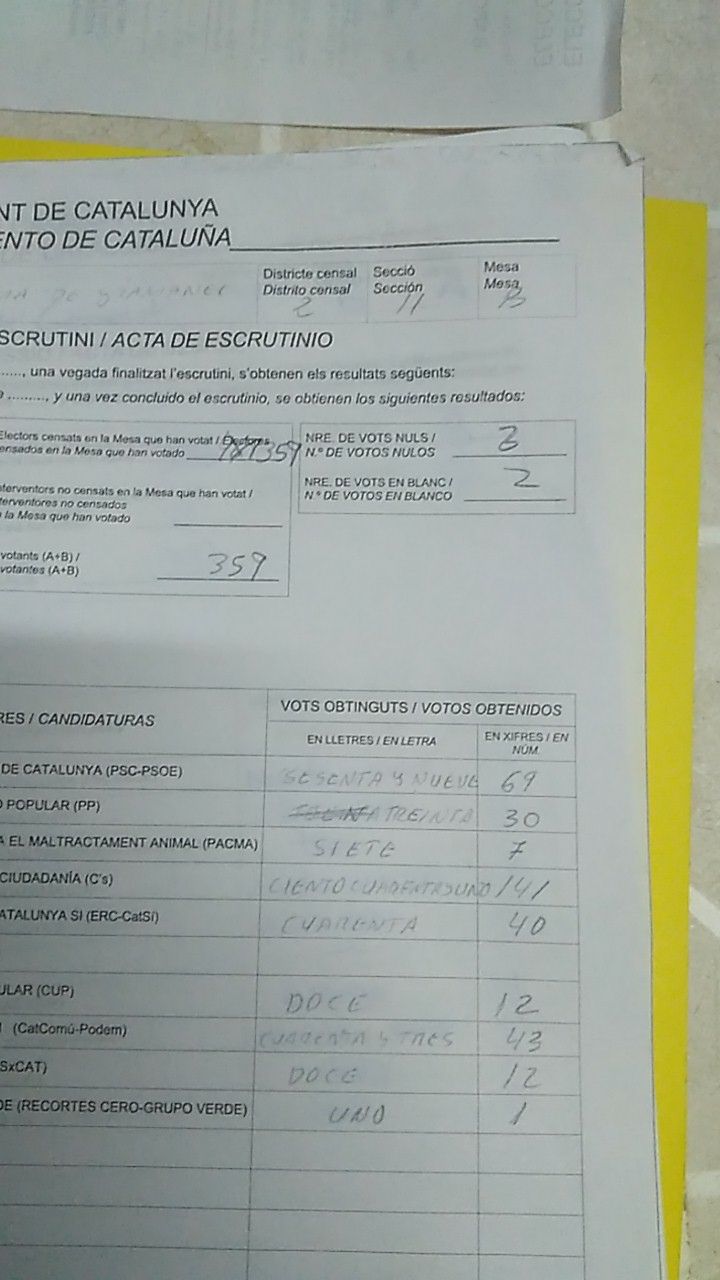 NT DE CATALUNYA
ENTO DE CATALUÑA
Districte censal Secció Mesa
Distrito censal Sección Mesa
2 11 B
SCRUTINI / ACTA DE ESCRUTINIO
......, una vegada finalitzat l'escrutini, s'obtenen els resultats següents:
........., y una vez concluido el escrutinio, se obtienen los siguientes resultados:
Electors censats en la Mesa que han votat / Electores
ensados en la Mesa que han votado 359
NRE. DE VOTS NULS / 3
N.º DE VOTOS NULOS
nterventors no censats en la Mesa que han votat /
terventores no censados
n la Mesa que han votado
NRE. DE VOTS EN BLANC / 2
N º DE VOTOS EN BLANCO
votants (A+B) / 359
votantes (A+B)
RES / CANDIDATURAS VOTS OBTINGUTS / VOTOS OBTENIDOS
EN LLETRES / EN LETRA EN XIFRES / EN NÚM.
DE CATALUNYA (PSC-PSOE) SESENTA Y NUEVE 69
O POPULAR (PP) TREINTA 30
A EL MALTRACTAMENT ANIMAL (PACMA) SIETE 7
CIUDADANÍA (C's) CIENTO CUARENTA Y UNO 141
ATALUNYA SI (ERC-CatSí) CUARENTA 40
ULAR (CUP) DOCE 12
(CatComú-Podem) CUARENTA Y TRES 43
SxCAT) DOCE 12
DE (RECORTES CERO-GRUPO VERDE) UNO 1